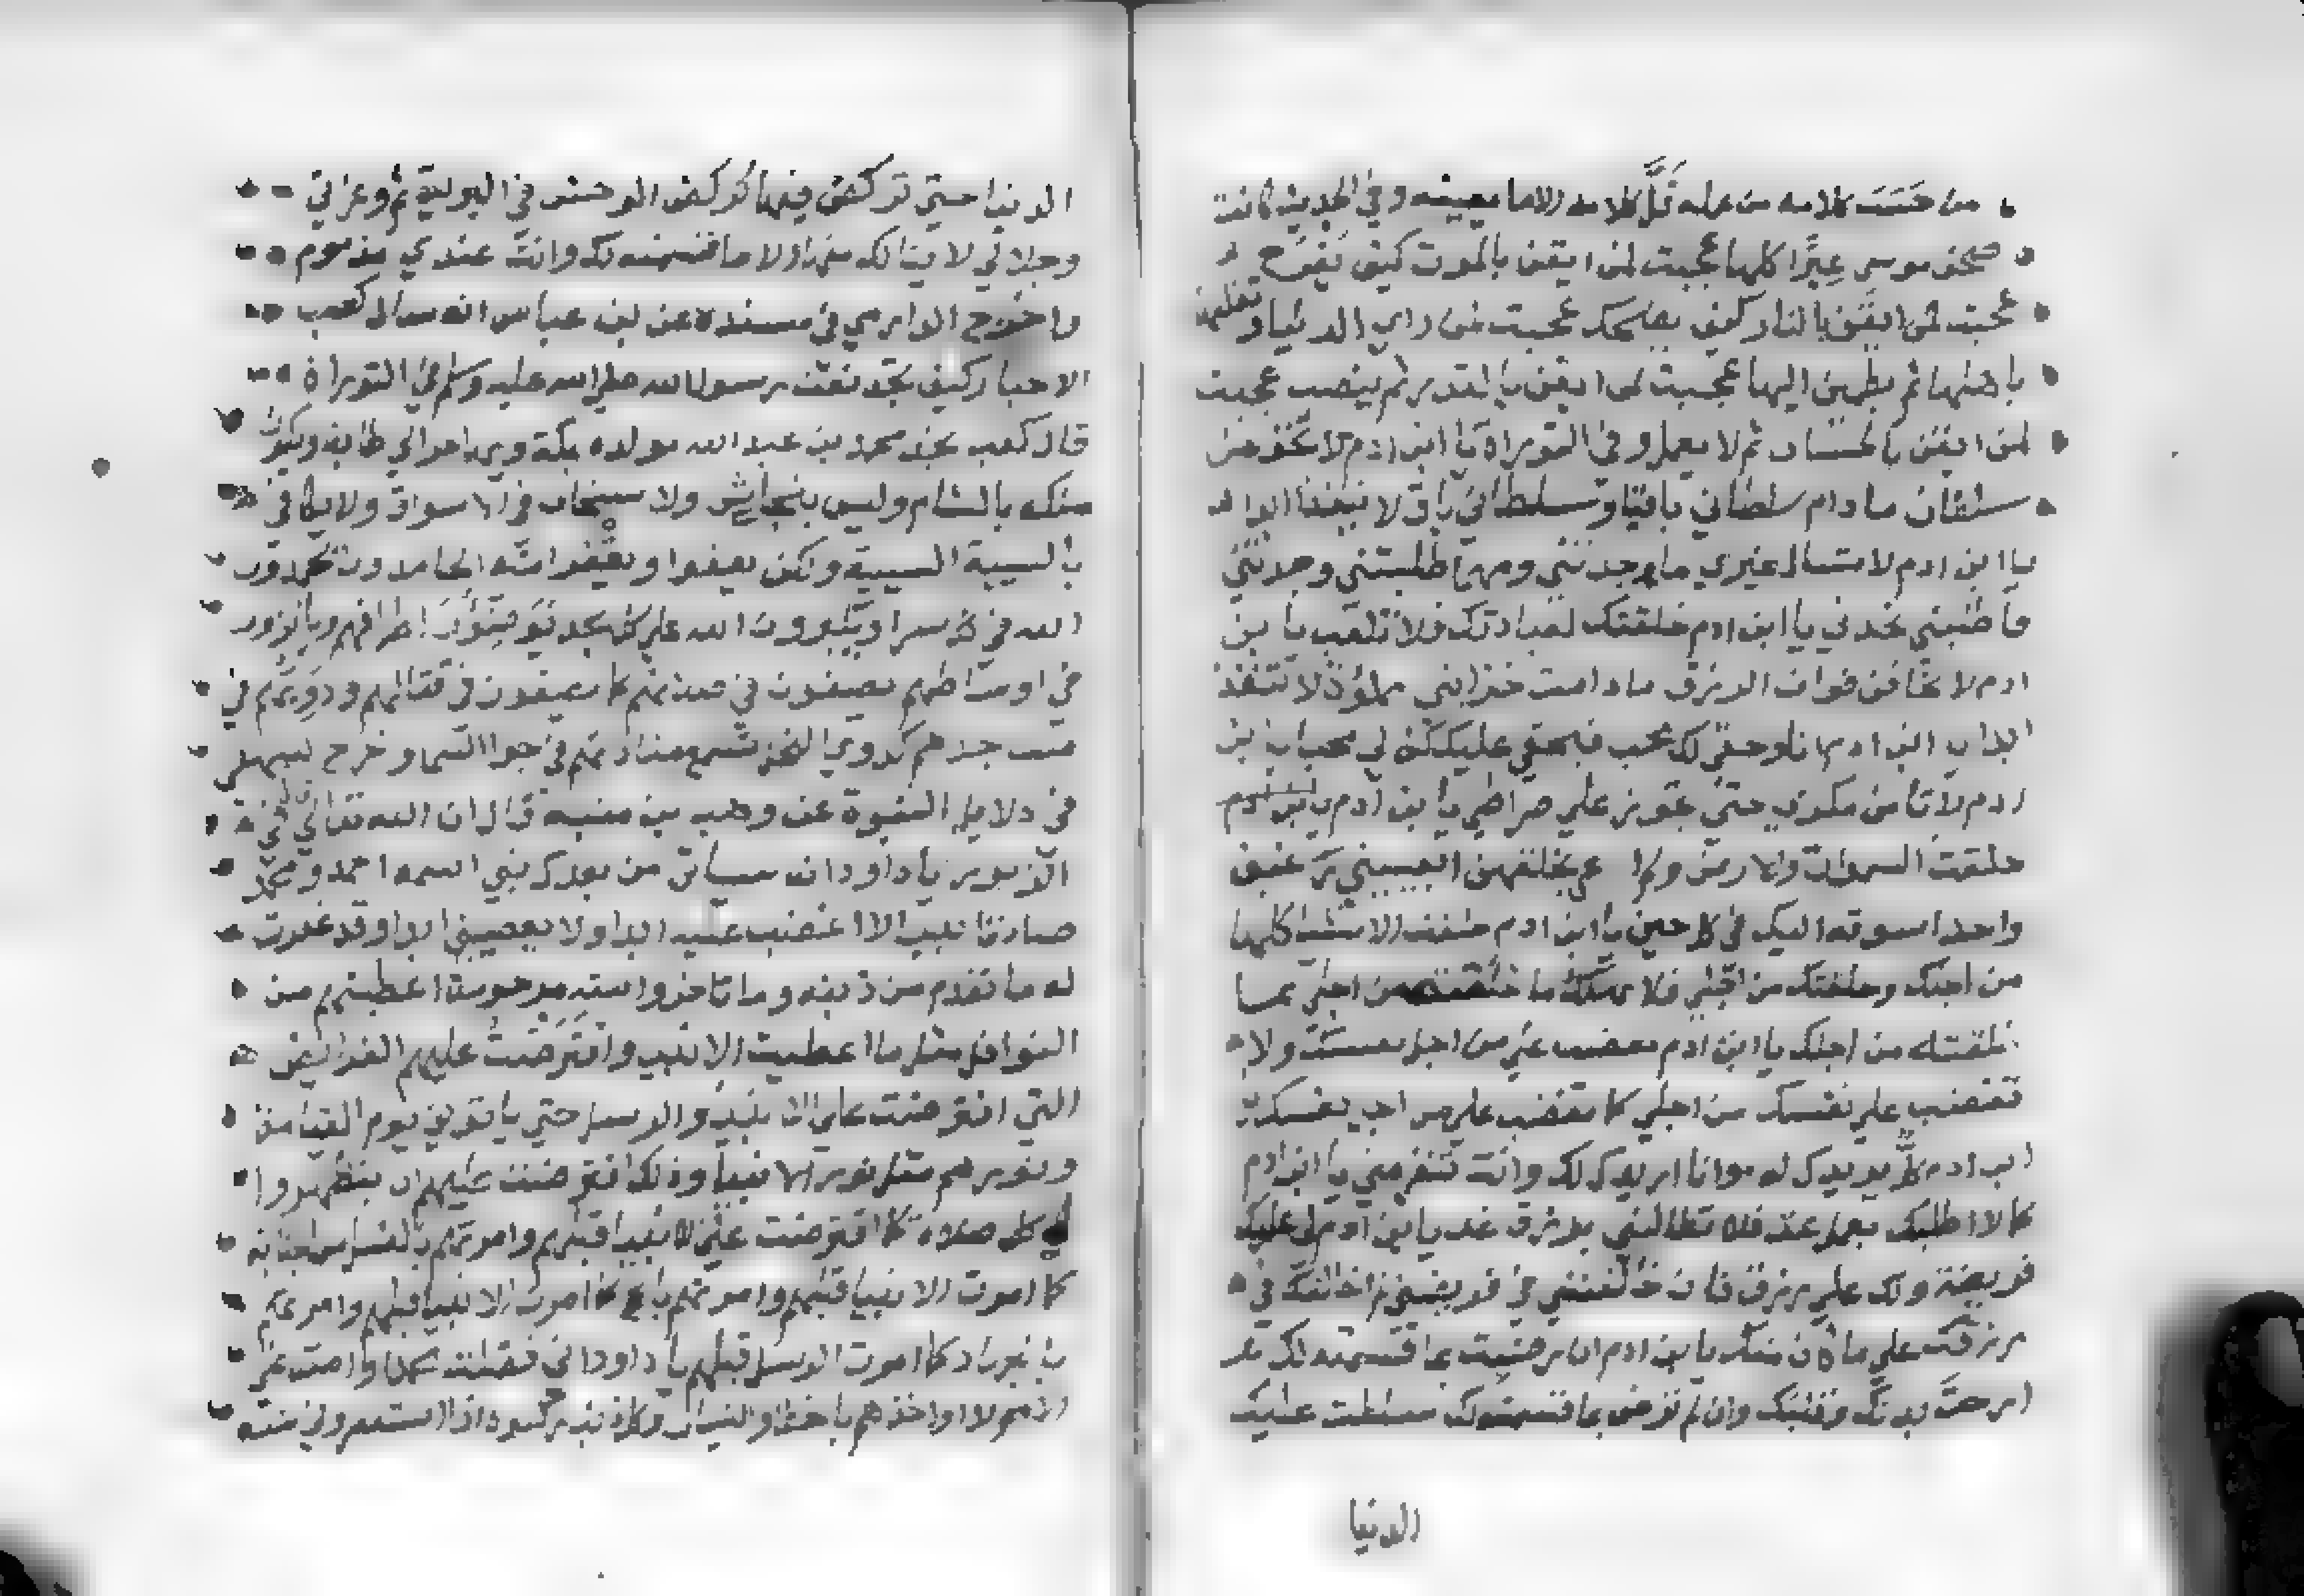 من حَسَبَ كلامه من عمله قَلَّ كلامه الا ما يعينه وفي الحديث كانت
صحف موسى عِبَرًا كلها عجبت لمن ايقن بالموت كيف يَفرَح
عجبت لمن ايقن بالنار كيف يضحك عجبت لمن راي الدنيا وتقلبها
باهلها ثم يطمين اليها عجبت لمن ايقن بالقدر ثم ينصب عجبت
لمن ايقن بالحساب ثم لا يعمل وفي التوراة يا ابن ادم لا تخف من
سلطان ما دام سلطاني باقيا وسلطاني باق لا ينفذ ابدا
يا ابن ادم لا تسال غيري ما وجدتني ومهما طلبتني وجدتني
يا ابن ادم خلقتك لعبادتك فلا تلعب يا بن
ادم لا تخافن فوات الرزق ما دامت خزايني مملؤة لا تنفذ
ابدا يا ابن ادم انا وحقي لك محب فبحقي عليك كن لي محبا يا بن
ادم لا تامن مكري حتي تجوز علي صراطي يا بن ادم
خلقت السموات والارض ولم اعي بخلقهن ايعييني رغيف
واحد اسوقه اليك في كل حين يا ابن ادم خلقت الاشيا كلها
من اجلك وخلقتك من اجلي فلا من اجلي بما
خلقته من اجلك يا ابن ادم تغضب علي من اجل نفسك ولا
تغضب علي نفسك من اجلي كما تغضب علي من اجل نفسك
ابن ادم كلٌ يريدك له وانا اريدك لك وانت تفر مني يا ابن ادم
كما لا اطلبك بعمل غد فلا تطالبني برزق غد يا بن ادم لي عليك
فريضة ولك علي رزق فان خالفتني في فريضتي لم اخالفك في
رزقك علي ما كان منك يا بن ادم ان رضيت بما قسمته لك
ارحتُ بدنك وقلبك وان لم ترض بما قسمته لك سلطت عليك
الدنيا
الدنيا حتي تركض فيها كركض الوحش في البرية ثم وعزتي
وجلالي لا ينالك منها الا ما قسمته لك وانت عندي مذموم
واخرج الدارمي في مسنده عن ابن عباس انه سال كعب
الاحبار كيف تجد نعت رسول الله صلي الله عليه وسلم في التوراة
قال كعب نجده محمد بن عبد الله مولده بمكة ويهاجر الي طابة ويكون
ملكه بالشام وليس بفحاش ولا سخاب في الاسواق ولا يكافي
بالسيية السيية ولكن يعفوا ويغفر امته الحامدون يحمدون
الله في كل سرا ويكبرون الله علي كل نجد يَوضِئُونَ اطرافهم وياتزرون
في اوساطهم يصفون في صلاتهم كما يصفون في قتالهم ودَوِيُّهم في
مساجدهم كدوي النحل تسمع مناديهم في جوا السما وخرج البيهقي
في دلايل النبوة عن وهب بن منبه قال ان الله تعالي قال في
الزبور يا داود انه سياتي من بعدك نبي اسمه احمد ومحمد
صادقا نبيا لا اغضب عليه ابدا ولا يعصيني ابدا وقد غفرت
له ما تقدم من ذنبه وما تاخر وامته مرحومة اعطيتهم من
النوافل مثل ما اعطيت الانبيا وافتَرَضتُ عليهم الفرايض
التي افترضت علي الانبيا والرسل حتي ياتوني يوم القيامة
ونورهم مثل نور الانبيا وذلك اني افترضت عليهم ان يتطهروا
لي كل صلاة كما افترضت علي الانبيا قبلهم وامرتهم بالغسل من الجنابة
كما امرت الانبيا قبلهم وامرتهم بالحج كما امرت الانبيا قبلهم وامرتهم
بالجهاد كما امرت الرسل قبلهم يا داود اني فضلت محمدا وامته علي
الامم لا اواخذهم بالخطا والنسيان وكل ذنب ركبوه اذا استغفروني منه